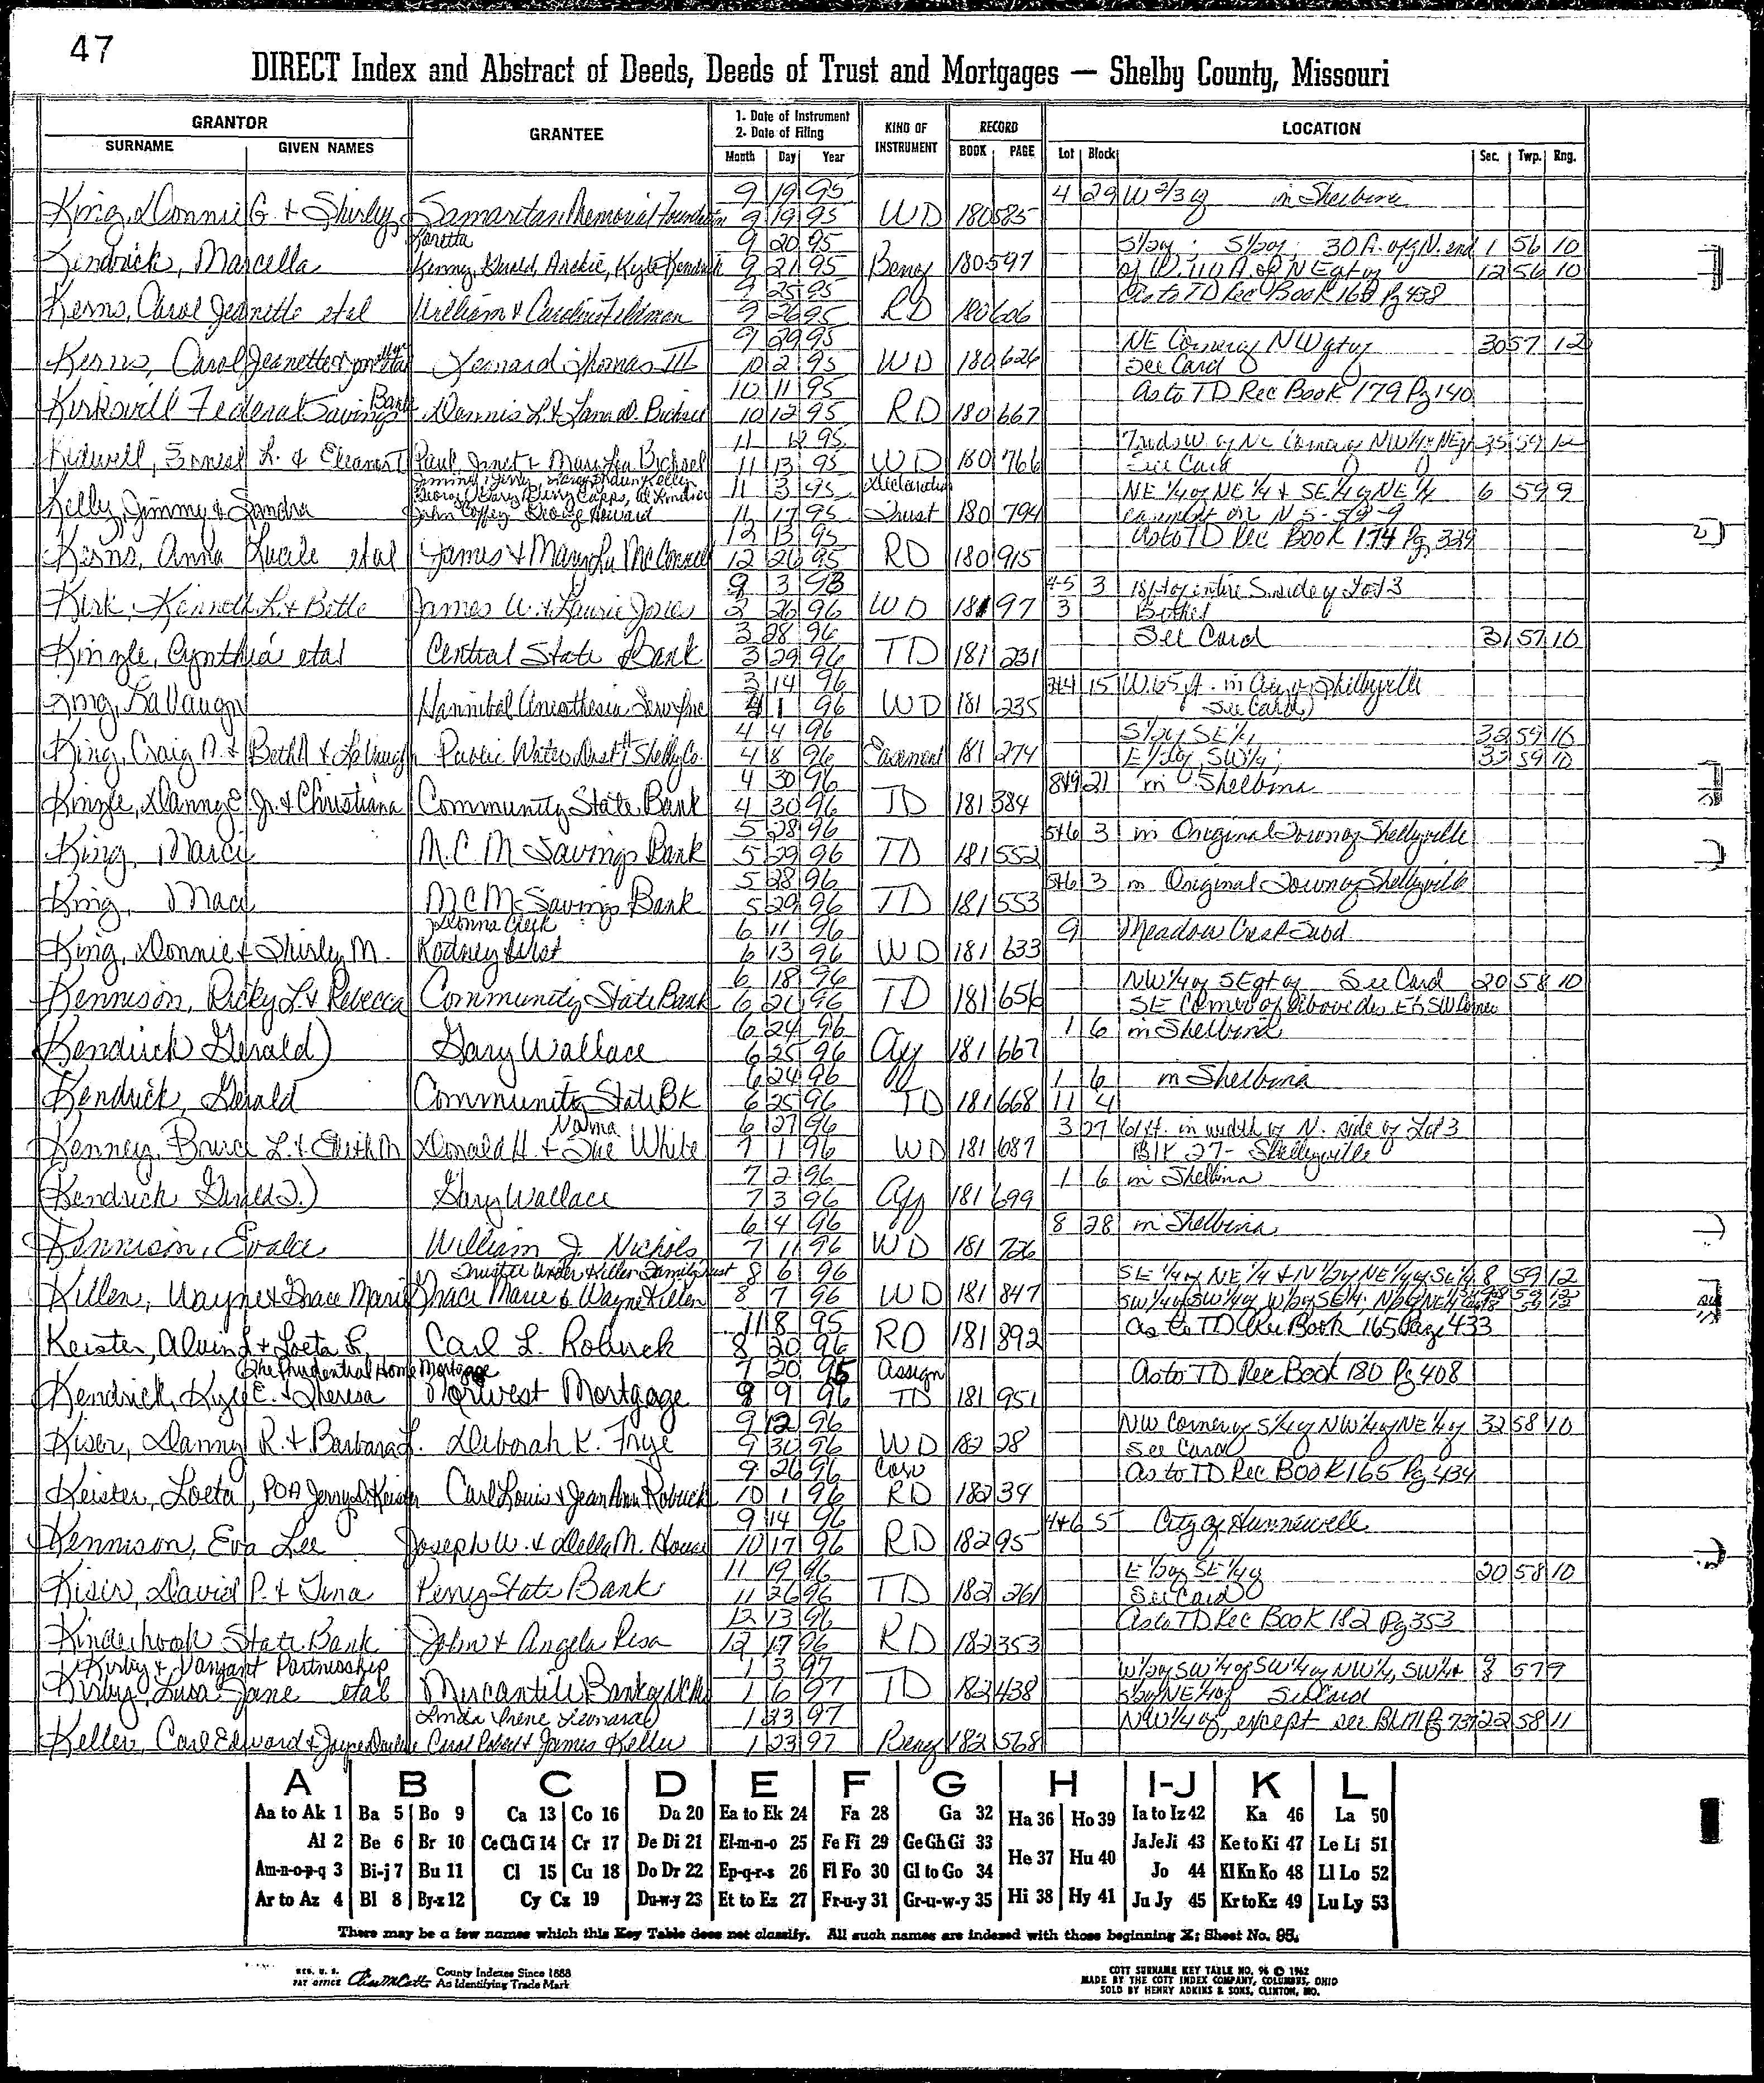 47
DIRECT Index and Abstract of Deeds, Deeds of Trust and Mortgages — Shelby County, Missouri
GRANTOR GRANTEE 1. Date of Instrument 2. Date of Filing KIND OF INSTRUMENT RECORD LOCATION
SURNAME GIVEN NAMES Month Day Year BOOK PAGE Lot Block Sec. Twp. Rng.
9 19 95 4 29 W 2/3 of in Shelbina
King, Donnie G. & Shirley Samaritan Memorial Foundation 9 19 95 WD 180 585
Loretta 9 20 95 S½ of; S½ of; 30 A. off N. end 1 56 10
Kendrick, Marcella Kenny, Gerald, Archie, Kyle Kendrick 9 21 95 Beney 180 597 of W. 110 A. of NE qt of 12 56 10
9 25 95 As to TD Rec Book 168 Pg 438
Kerns, Carol Jeanette etal William & Caroline Feldman 9 26 95 RD 180 606
9 29 95 NE Corner of NW qt of 30 57 12
Kerns, Carol Jeanette Leonard Thomas III 10 2 95 WD 180 626 See Card
10 11 95 As to TD Rec Book 179 Pg 140
Kirksvill Federal Savings Bank Dennis L. & Lana D. 10 12 95 RD 180 667
11 12 95 of NE Corner of NW¼ NE 35 59 12
Kidwell, Ernest L. & Eleanor Paul, Janet & Mary Lea Bichsel 11 13 95 WD 180 766 See Card
11 3 95 Declaration NE ¼ of NE ¼ & SE ¼ of NE ¼ 6 59 9
Kelly, Jimmy & Sandra John Coffey George Howard 11 17 95 Trust 180 794 5-59-9
12 13 95 As to TD Rec Book 174 Pg 339
Kerns, Anna Lucile etal James & Mary Lu McConnell 12 26 95 RD 180 915
9 3 93 4-5 3 18 ft of entire S. side of Lot 3
Kirk, Kenneth L. & Bette James W. & Laurie Jones 2 26 96 WD 181 97 3 Bethel
3 28 96 See Card 3 57 10
Kingle, Cynthia etal Central State Bank 3 29 96 TD 181 231
3 14 96 3&4 15 W. 65 ft. in City of Shelbyville
King, LaVaugn Hannibal Anesthesia Serv Inc 4 1 96 WD 181 235 See Card
4 4 96 S½ of SE¼ 32 59 10
King, Craig A. & Beth A & LaVaugn Public Water Dist #1 Shelby Co. 4 8 96 Easement 181 274 E½ of SW¼; 33 59 10
4 30 96 8&9 21 in Shelbina
Kingle, Danny E. Jr. & Christiana Community State Bank 4 30 96 TD 181 384
5 28 96 5&6 3 in Original Town of Shelbyville
King, Marci M.C.M Savings Bank 5 29 96 TD 181 552
5 28 96 5&6 3 in Original Town of Shelbyville
King, Maci MCM Savings Bank 5 29 96 TD 181 553
Donna Cheek 6 11 96 9 Meadow Crest Subd
King, Donnie & Shirley M. Rodney Hirst 6 13 96 WD 181 633
6 18 96 NW¼ of SE qt of See Card 20 58 10
Kennison, Ricky L. & Rebecca Community State Bank 6 21 96 TD 181 656 SE Corner of above des Et SW Corner
6 24 96 1 6 in Shelbina
(Kendrick Gerald) Gary Wallace 6 25 96 Aff 181 667
6 24 96 1 6 in Shelbina
Kendrick, Gerald Community State Bk 6 25 96 TD 181 668 11 4
Norma 6 27 96 3 27 61 ft. in width of N. side of Lot 3
Kenney, Bruce L. & Edith M Donald H. & Sue White 7 1 96 WD 181 687 Blk 27 - Shelbyville
7 2 96 1 6 in Shelbina
(Kendrick Gerald D.) Gary Wallace 7 3 96 Aff 181 699
6 4 96 8 28 in Shelbina
Kennison, Evalee William J. Nichols 7 11 96 WD 181 726
Trustee Under Killen Family Trust 8 6 96 SE ¼ of NE ¼ & N ½ of NE ¼ of SE ¼ 8 59 12
Killen, Wayne & Grace Marie Grace Marie & Wayne Killen 8 7 96 WD 181 847 SW¼ of SW¼ of W½ of SE¼; N½ of NE¼
11 8 95 As to TD Rec Book 165 Page 433
Keister, Alvin L. & Loeta L. Carl L. Robuck 8 20 96 RD 181 892
(The Prudential Home Mortgage 7 20 95 Assign As to TD Rec Book 180 Pg 408
Kendrick, Kyle E. & Theresa Norwest Mortgage 8 9 96 TD 181 951
9 12 96 NW Corner of S½ of NW¼ of NE¼ of 32 58 10
Kiser, Danny R. & Barbara L. Deborah K. Frye 9 30 96 WD 182 28 See Card
9 26 96 Corr As to TD Rec Book 165 Pg 434
Keister, Loeta, POA Jerry D. Keister Carl Louis & Jean Ann Robuck 10 1 96 RD 182 34
9 14 96 4&6 5 City of Hunnewell
Kennison, Eva Lee Joseph W. & Della M. House 10 17 96 RD 182 95
11 19 96 E ½ of SE ¼ of 20 58 10
Kiser, David P. & Tina Perry State Bank 11 26 96 TD 182 261 See Card
12 13 96 As to TD Rec Book 182 Pg 353
Kinderhook State Bank John & Angela Resa 12 17 96 RD 182 353
Kirby & Vanzant Partnership 1 3 97 W½ of SW¼ of SW¼ of NW¼, SW¼ 57 9
Kirby, Lura Jane etal Mercantile Bank 1 6 97 TD 182 438 See Card
Linda Irene Leonard 1 23 97 NW¼ of, except see 22 58 11
Keller, Carl Edward & Joyce Darlene Carol Robert James Keller 1 23 97 Beney 182 568
A B C D E F G H I-J K L
Aa to Ak 1 Ba 5 Bo 9 Ca 13 Co 16 Da 20 Ea to Ek 24 Fa 28 Ga 32 Ha 36 Ho 39 Ia to Iz 42 Ka 46 La 50
Al 2 Be 6 Br 10 Ce Ch Ci 14 Cr 17 De Di 21 El-m-n-o 25 Fe Fi 29 Ge Gh Gi 33 He 37 Hu 40 Ja Je Ji 43 Ke to Ki 47 Le Li 51
Am-n-o-p-q 3 Bi-j 7 Bu 11 Cl 15 Cu 18 Do Dr 22 Ep-q-r-s 26 Fl Fo 30 Gl to Go 34 Jo 44 Kl Kn Ko 48 Ll Lo 52
Ar to Az 4 Bl 8 By-z 12 Cy Cz 19 Du-w-y 23 Et to Ez 27 Fr-u-y 31 Gr-u-w-y 35 Hi 38 Hy 41 Ju Jy 45 Kr to Kz 49 Lu Ly 53
There may be a few names which this Key Table does not classify. All such names are indexed with those beginning X; Sheet No. 95.
REG. U. S. PAT OFFICE County Indexes Since 1888
As Identifying Trade Mark
COTT SURNAME KEY TABLE NO. 96 © 1962
MADE BY THE COTT INDEX COMPANY, COLUMBUS, OHIO
SOLD BY HENRY ADKINS & SONS, CLINTON, MO.